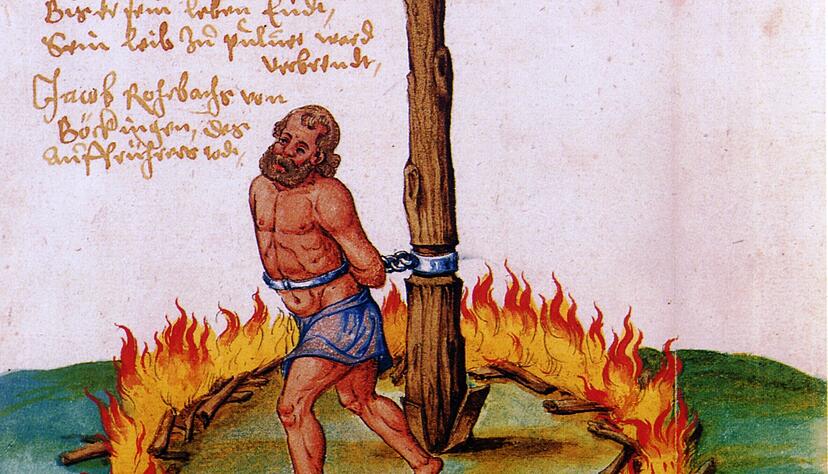 Bis er sein leben Endt,
Sein leib Zu puluer ward
verbrendt,
Jacob Rohrbachs von
Böckingen, des
Auffrührers todt,